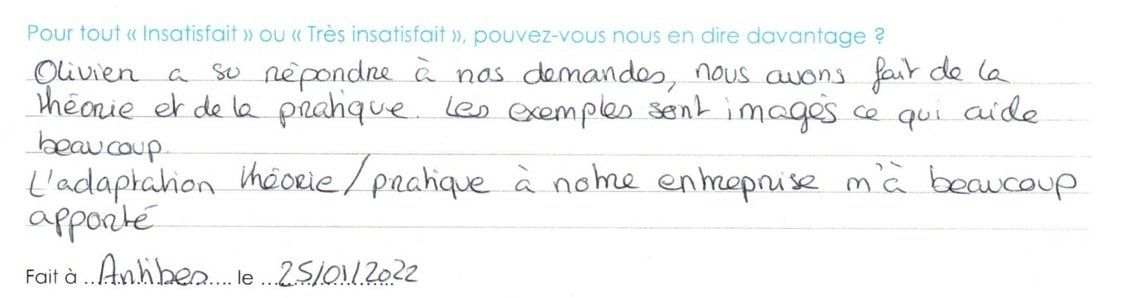 Pour tout « Insatisfait » ou « Très insatisfait », pouvez-vous nous en dire davantage ?
Olivier a su répondre à nos demandes, nous avons fait de la
théorie et de la pratique. Les exemples sont imagés ce qui aide
beaucoup.
L'adaptation théorie/pratique à notre entreprise m'à beaucoup
apporté
Fait à ..Antibes.... le ...25/01/2022